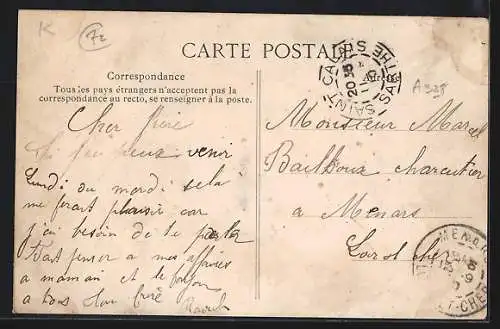 K
72
CARTE POSTALE
Correspondance
Tous les pays étrangers n'acceptent pas la
correspondance au recto, se renseigner à la poste.
SAINT CALAIS
SARTHE
A328
Cher frère
Si tu peux venir
Lundi ou mardi sela
me ferait plaisir car
j'ai besoin de te parler
a maman et le
a tous ton frère
Raoul
Monsieur Marcel
Bailboux charcutier
a Menars
Loir et cher